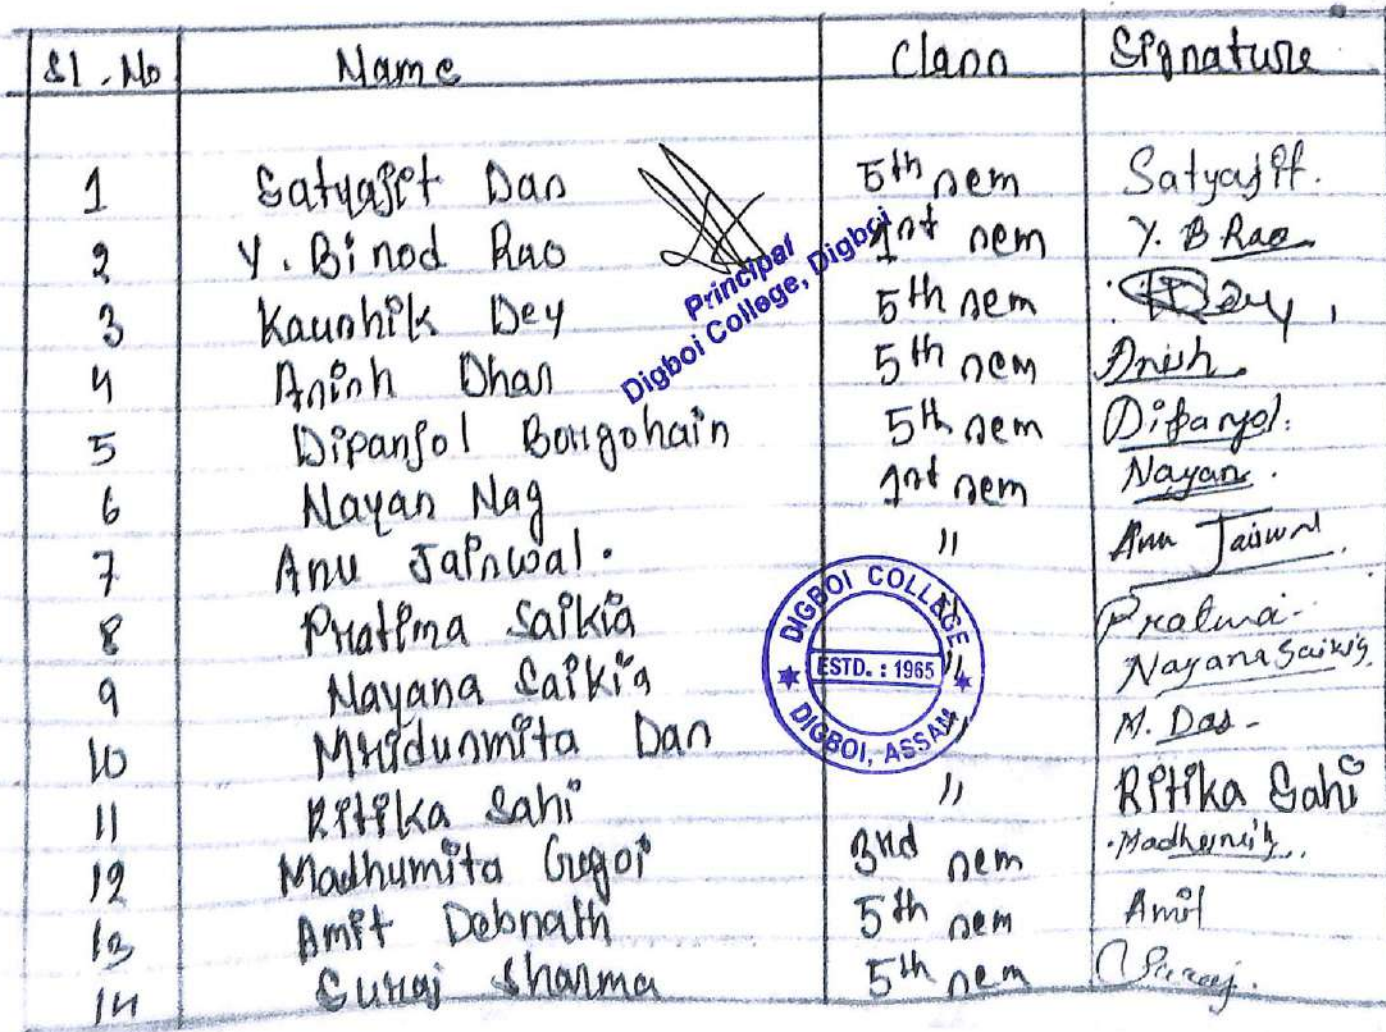 Sl. No Name Class Signature
1 Satyajit Das 5th sem Satyajit.
2 Y. Binod Rao 1st sem Y. B Rao
3 Kaushik Dey 5th sem Dey
4 Anish Dhar 5th sem Anish
5 Dipanjol Borgohain 5th sem Dipanjol.
6 Nayan Nag 1st sem Nayan.
7 Anu Jaiswal. " Anu Jaiswal
8 Pratima Saikia " Pratima
9 Nayana Saikia " Nayana Saikia
10 Mridusmita Das " M. Das
11 Ritika Sahi " Ritika Sahi
12 Madhumita Gogoi 3rd sem Madhumita
13 Amit Debnath 5th sem Amit
14 Suraj Sharma 5th sem Suraj.
Principal
Digboi College, Digboi
DIGBOI COLLEGE
ESTD. : 1965
DIGBOI, ASSAM